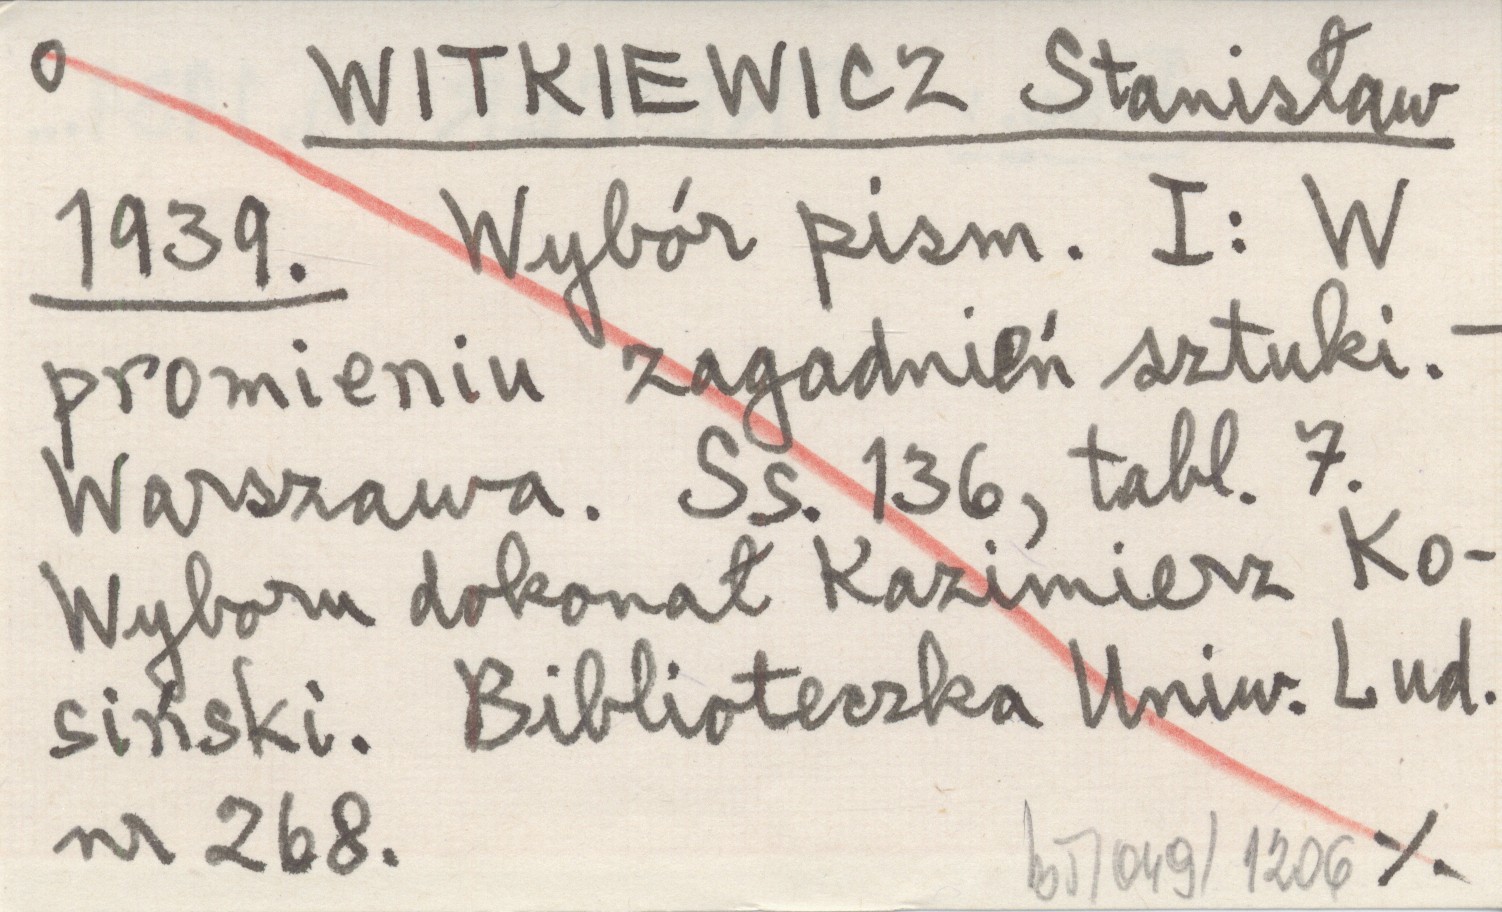 o WITKIEWICZ Stanisław
1939. Wybór pism. I: W
promieniu zagadnień sztuki. -
Warszawa. Ss. 136, tabl. 7.
Wyboru dokonał Kazimierz Ko-
siński. Biblioteczka Uniw. Lud.
nr 268.
bJ/049/1206 ./.